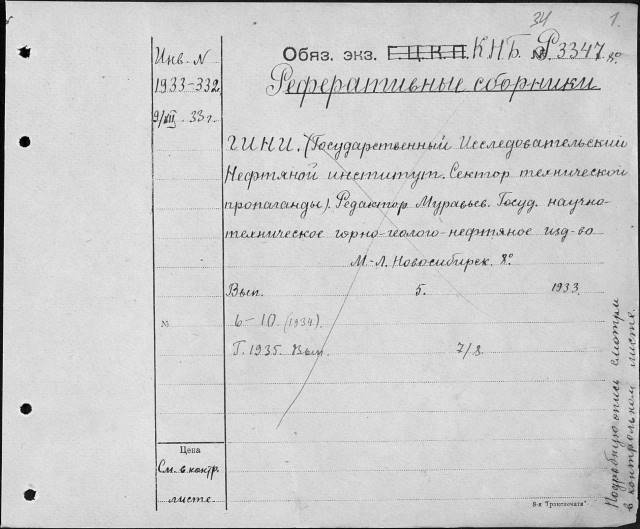 34
1.
Инв. N
1933-332
9/VIII 33 г.
Обяз. экз. Г.Ц.К.П. К.Н.Б. № Р3347 8°
Реферативные сборники
ГИНИ. (Государственный Исследовательский
Нефтяной институт. Сектор технической
пропаганды). Редактор Муравьев. Госуд. научно-
техническое горно-геолого-нефтяное изд-во
М.-Л. Новосибирск. 8°.
Вып. 5. 1933.
№ 6-10 (1934).
Г. 1935. Вып. 7/8.
Цена
См. в контр.
листе.
Подробную опись смотри
в контрольном листе.
8-я "Транспечати"